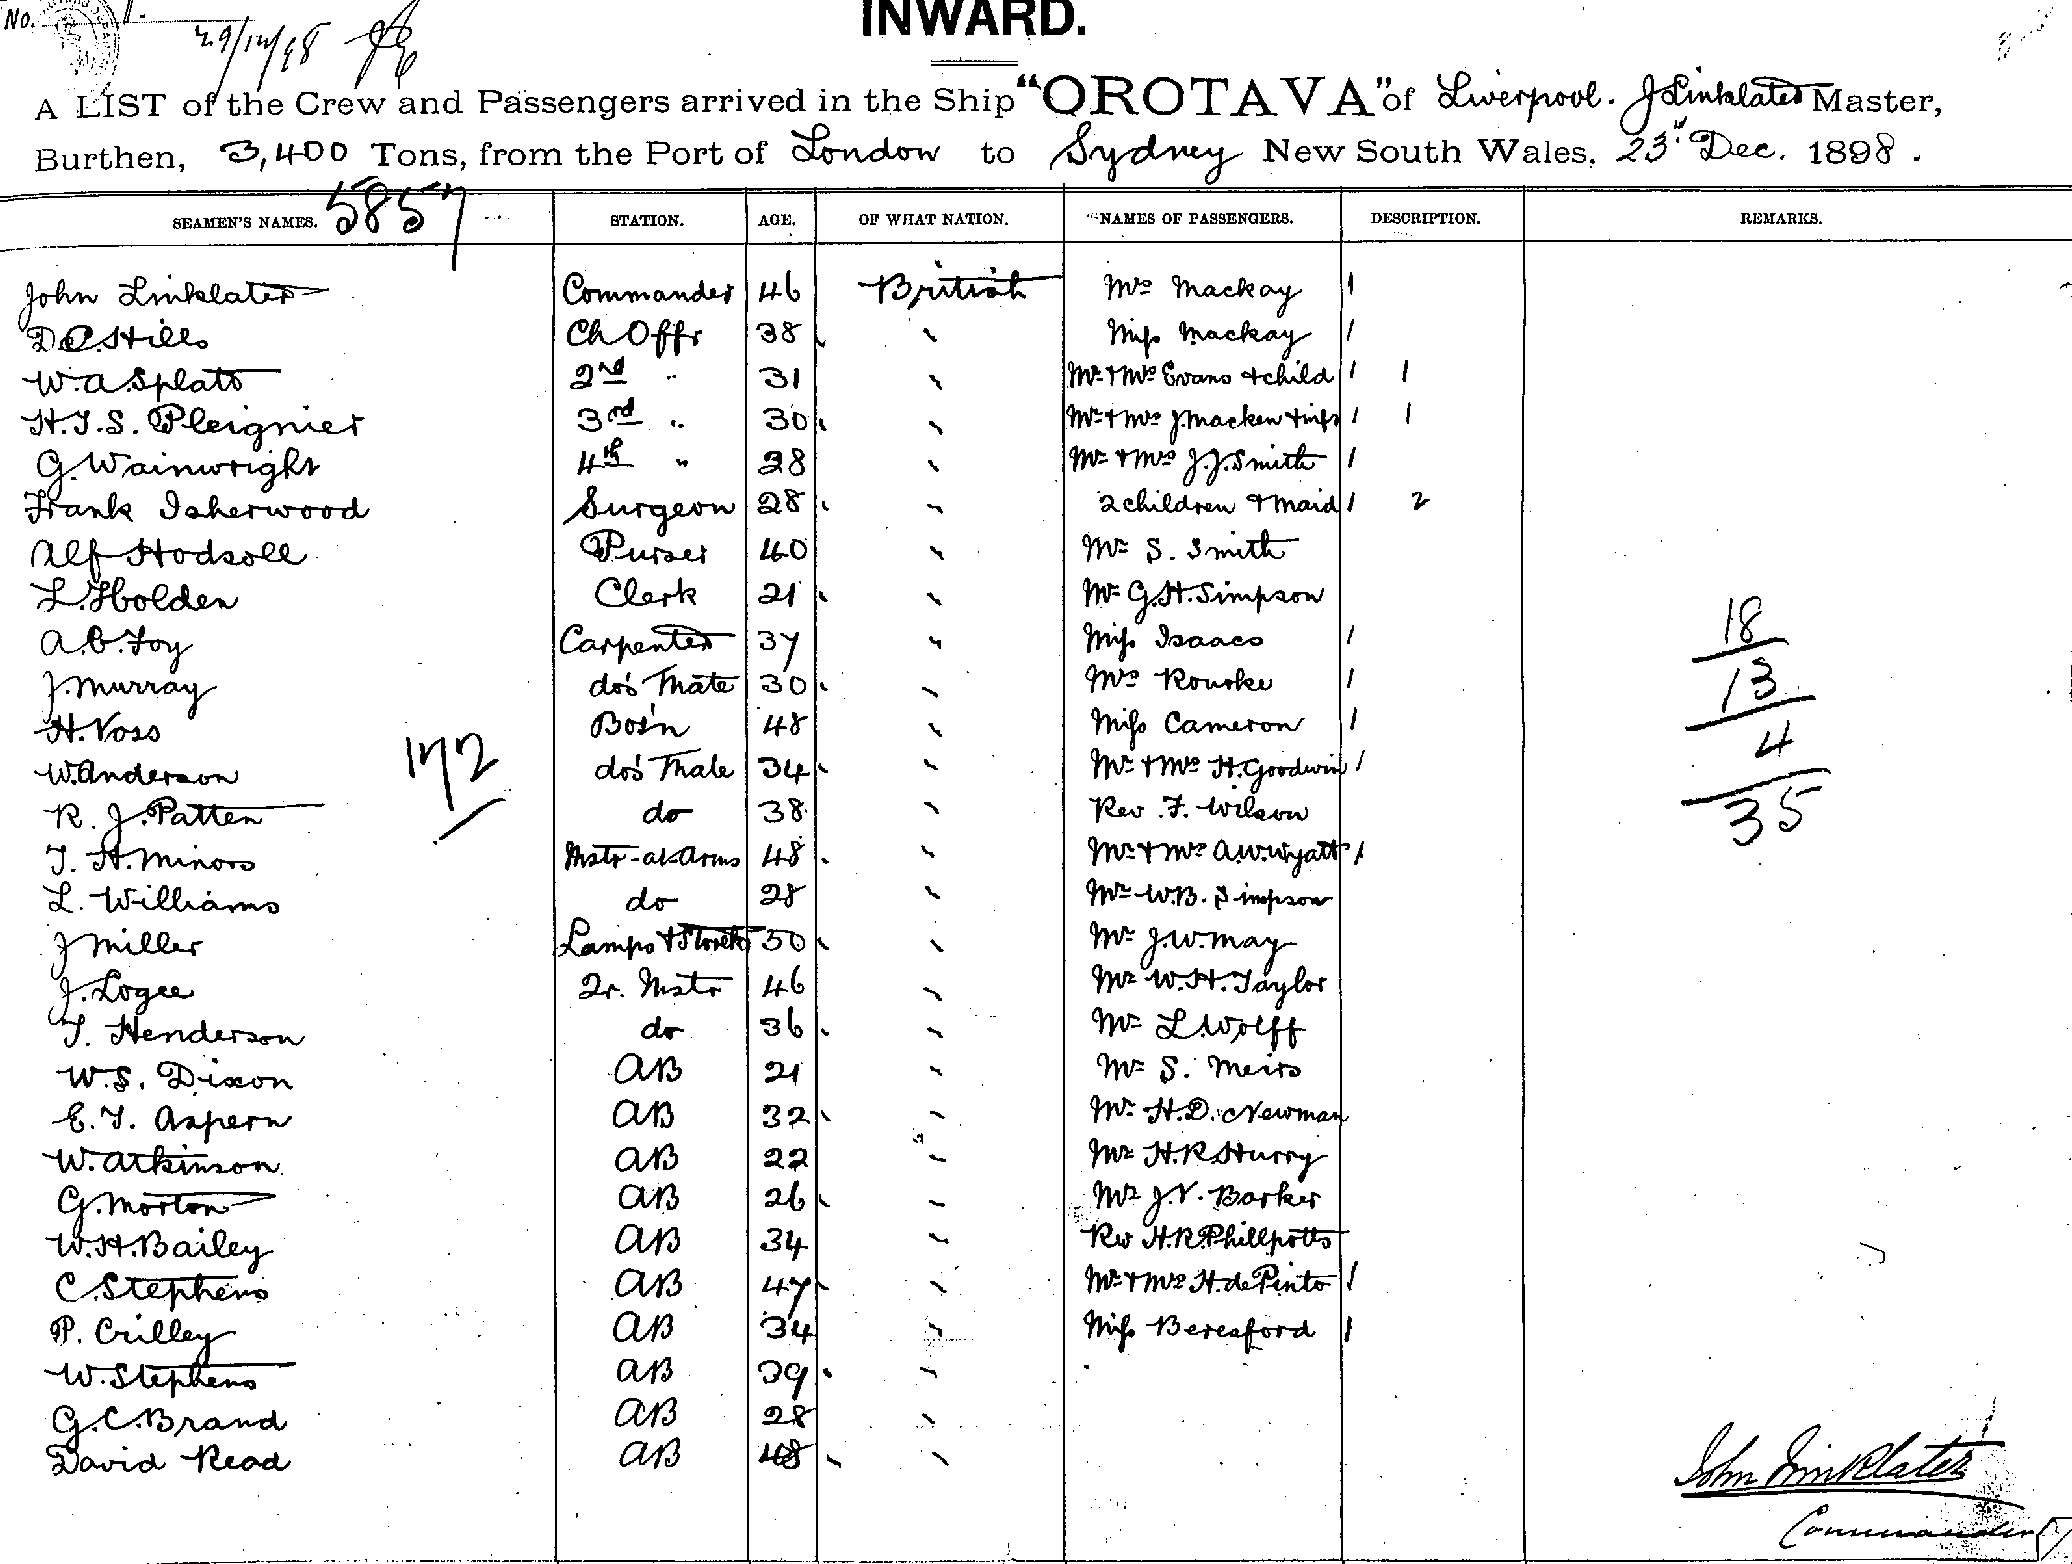 No.
29/12/98
INWARD.
A LIST of the Crew and Passengers arrived in the Ship "OROTAVA" of Liverpool. J Linklater Master,
Burthen, 3,400 Tons, from the Port of London to Sydney New South Wales, 23rd Dec. 1898.
SEAMEN'S NAMES. 5857 STATION. AGE. OF WHAT NATION. NAMES OF PASSENGERS. DESCRIPTION. REMARKS.
John Linklater Commander 46 British Mrs Mackay 1
D.C. Hills Ch Offr 38 " Miss Mackay 1
W.A. Splatt 2nd " 31 " Mr & Mrs Evans & child 1 1
H.T.S. Pleignier 3rd " 30 " Mr & Mrs J. Macken & inft 1 1
G. Wainwright 4th " 28 " Mr & Mrs J.J. Smith 1
Frank Isherwood Surgeon 28 " 2 children & maid 1 2
Alf Hodsoll Purser 40 " Mr S. Smith
L. Holden Clerk 21 " Mr G.H. Simpson
A.C. Foy Carpenter 37 " Miss Isaacs 1
J. Murray do's Mate 30 " Mrs Rourke 1
H. Voss Bos'n 48 " Miss Cameron 1
W. Anderson do's Mate 34 " Mr & Mrs H. Goodwin 1
R. J. Patten do 38 " Rev. F. Wilson
T. H. Minors Mstr-at-Arms 48 " Mr & Mrs A.W. Wyatt 1
L. Williams do 28 " Mr W.B. Simpson
J Miller Lamps & Storekr 50 " Mr J.W. May
J. Logee Qr. Mstr 46 " Mr W.H. Taylor
T. Henderson do 36 " Mr L. Wolff
W.S. Dixon AB 21 " Mr S. Meirs
E.T. Aspern AB 32 " Mr H.D. Newman
W. Atkinson AB 22 " Mr H.R. Hurry
G. Morton AB 26 " Mr J.V. Barker
W.H. Bailey AB 34 " Rev H.R. Phillpotts
C. Stephens AB 47 " Mr & Mrs H. de Pinto 1
P. Crilley AB 34 " Miss Beresford 1
W. Stephens AB 39 "
G.C. Brand AB 28 "
David Read AB 48 "
172
18
13
4
35
John Linklater
Commander